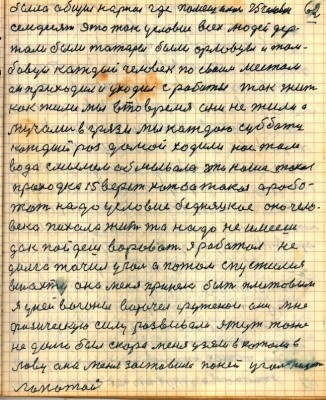 62
была общая нарная где помещался 25 человек
семдисят это так условия всех людей дер-
жали были татары были орловцы и там-
бовцы каждый человек по своим местам
он приходил и уходил с работы так жит
как жили мы в то время они не жили а
мучалис в грязи мы каждою субботу
каждый раз домой ходили нас там
вода смылем обмывала эта наша такая
праходка 15 верст на то такая а рабо-
тат надо условие бедняцкое оно чело-
века пихала жит та надо не имееш
дак пойдеш вороват. Я работал не
долга точил угал а потом спустился
в шахту она меня пришел быт плитовым
я у ней вагоны ворочел груженои они мне
физическую силу развивали этут тоже
не долга был скора меня узяли в котом в
лаву она меня заставила поней угал
лопатой